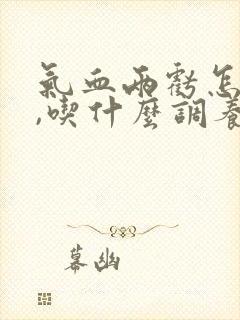 氣血兩虧怎
,喫什麼調養
幕幽